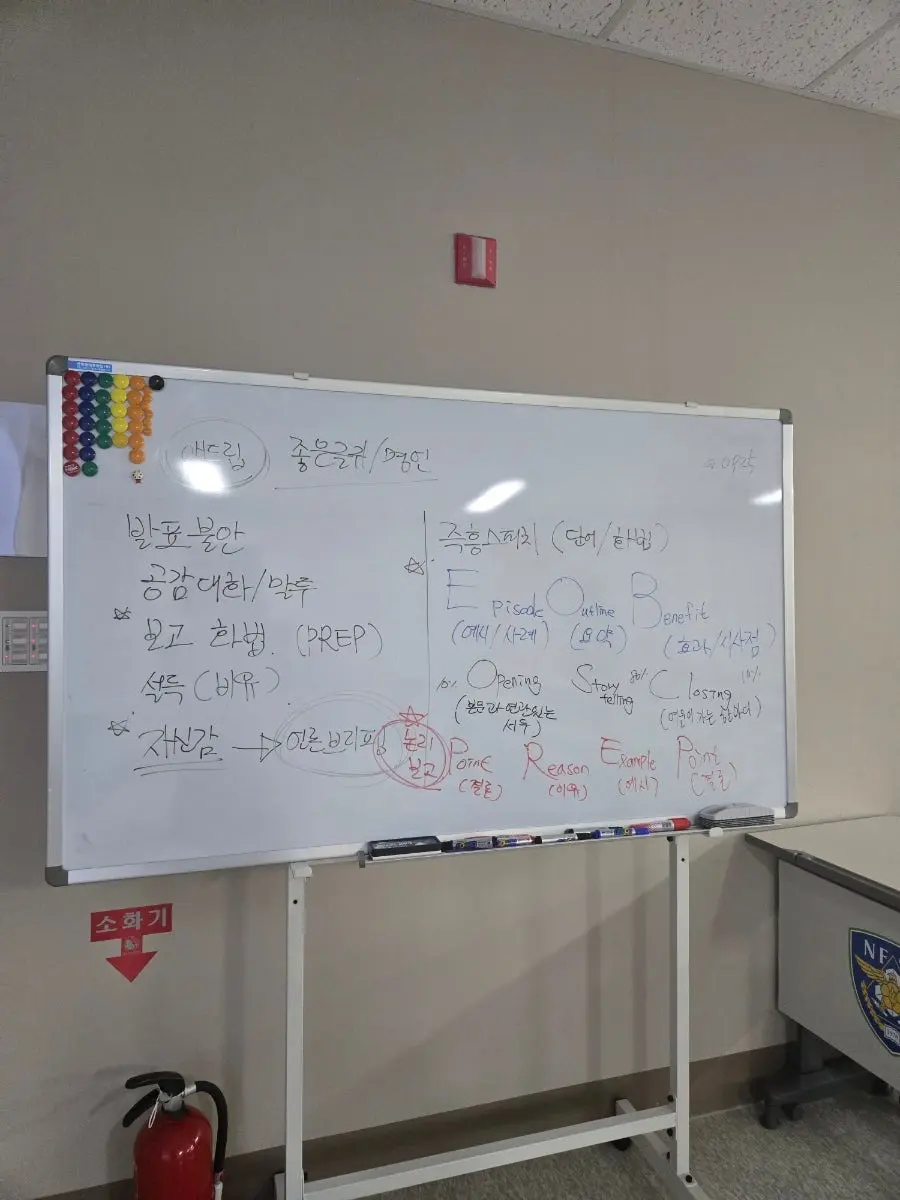 애드립 좋은글귀/명언
발표 불안
공감대화/말투
☆ 보고 화법 (PREP)
설득 (비유)
☆ 자신감 → 언론브리핑
☆ 즉흥스피치 (단어/화법)
Episode Outline Benefit
(예시/사례) (요약) (효과/시사점)
10% Opening Story telling 80% Closing 10%
(본문과 연관있는 서두) (여운이 가는)
☆ 논리 보고 Point Reason Example Point
(결론) (이유) (예시) (결론)
소화기
NF